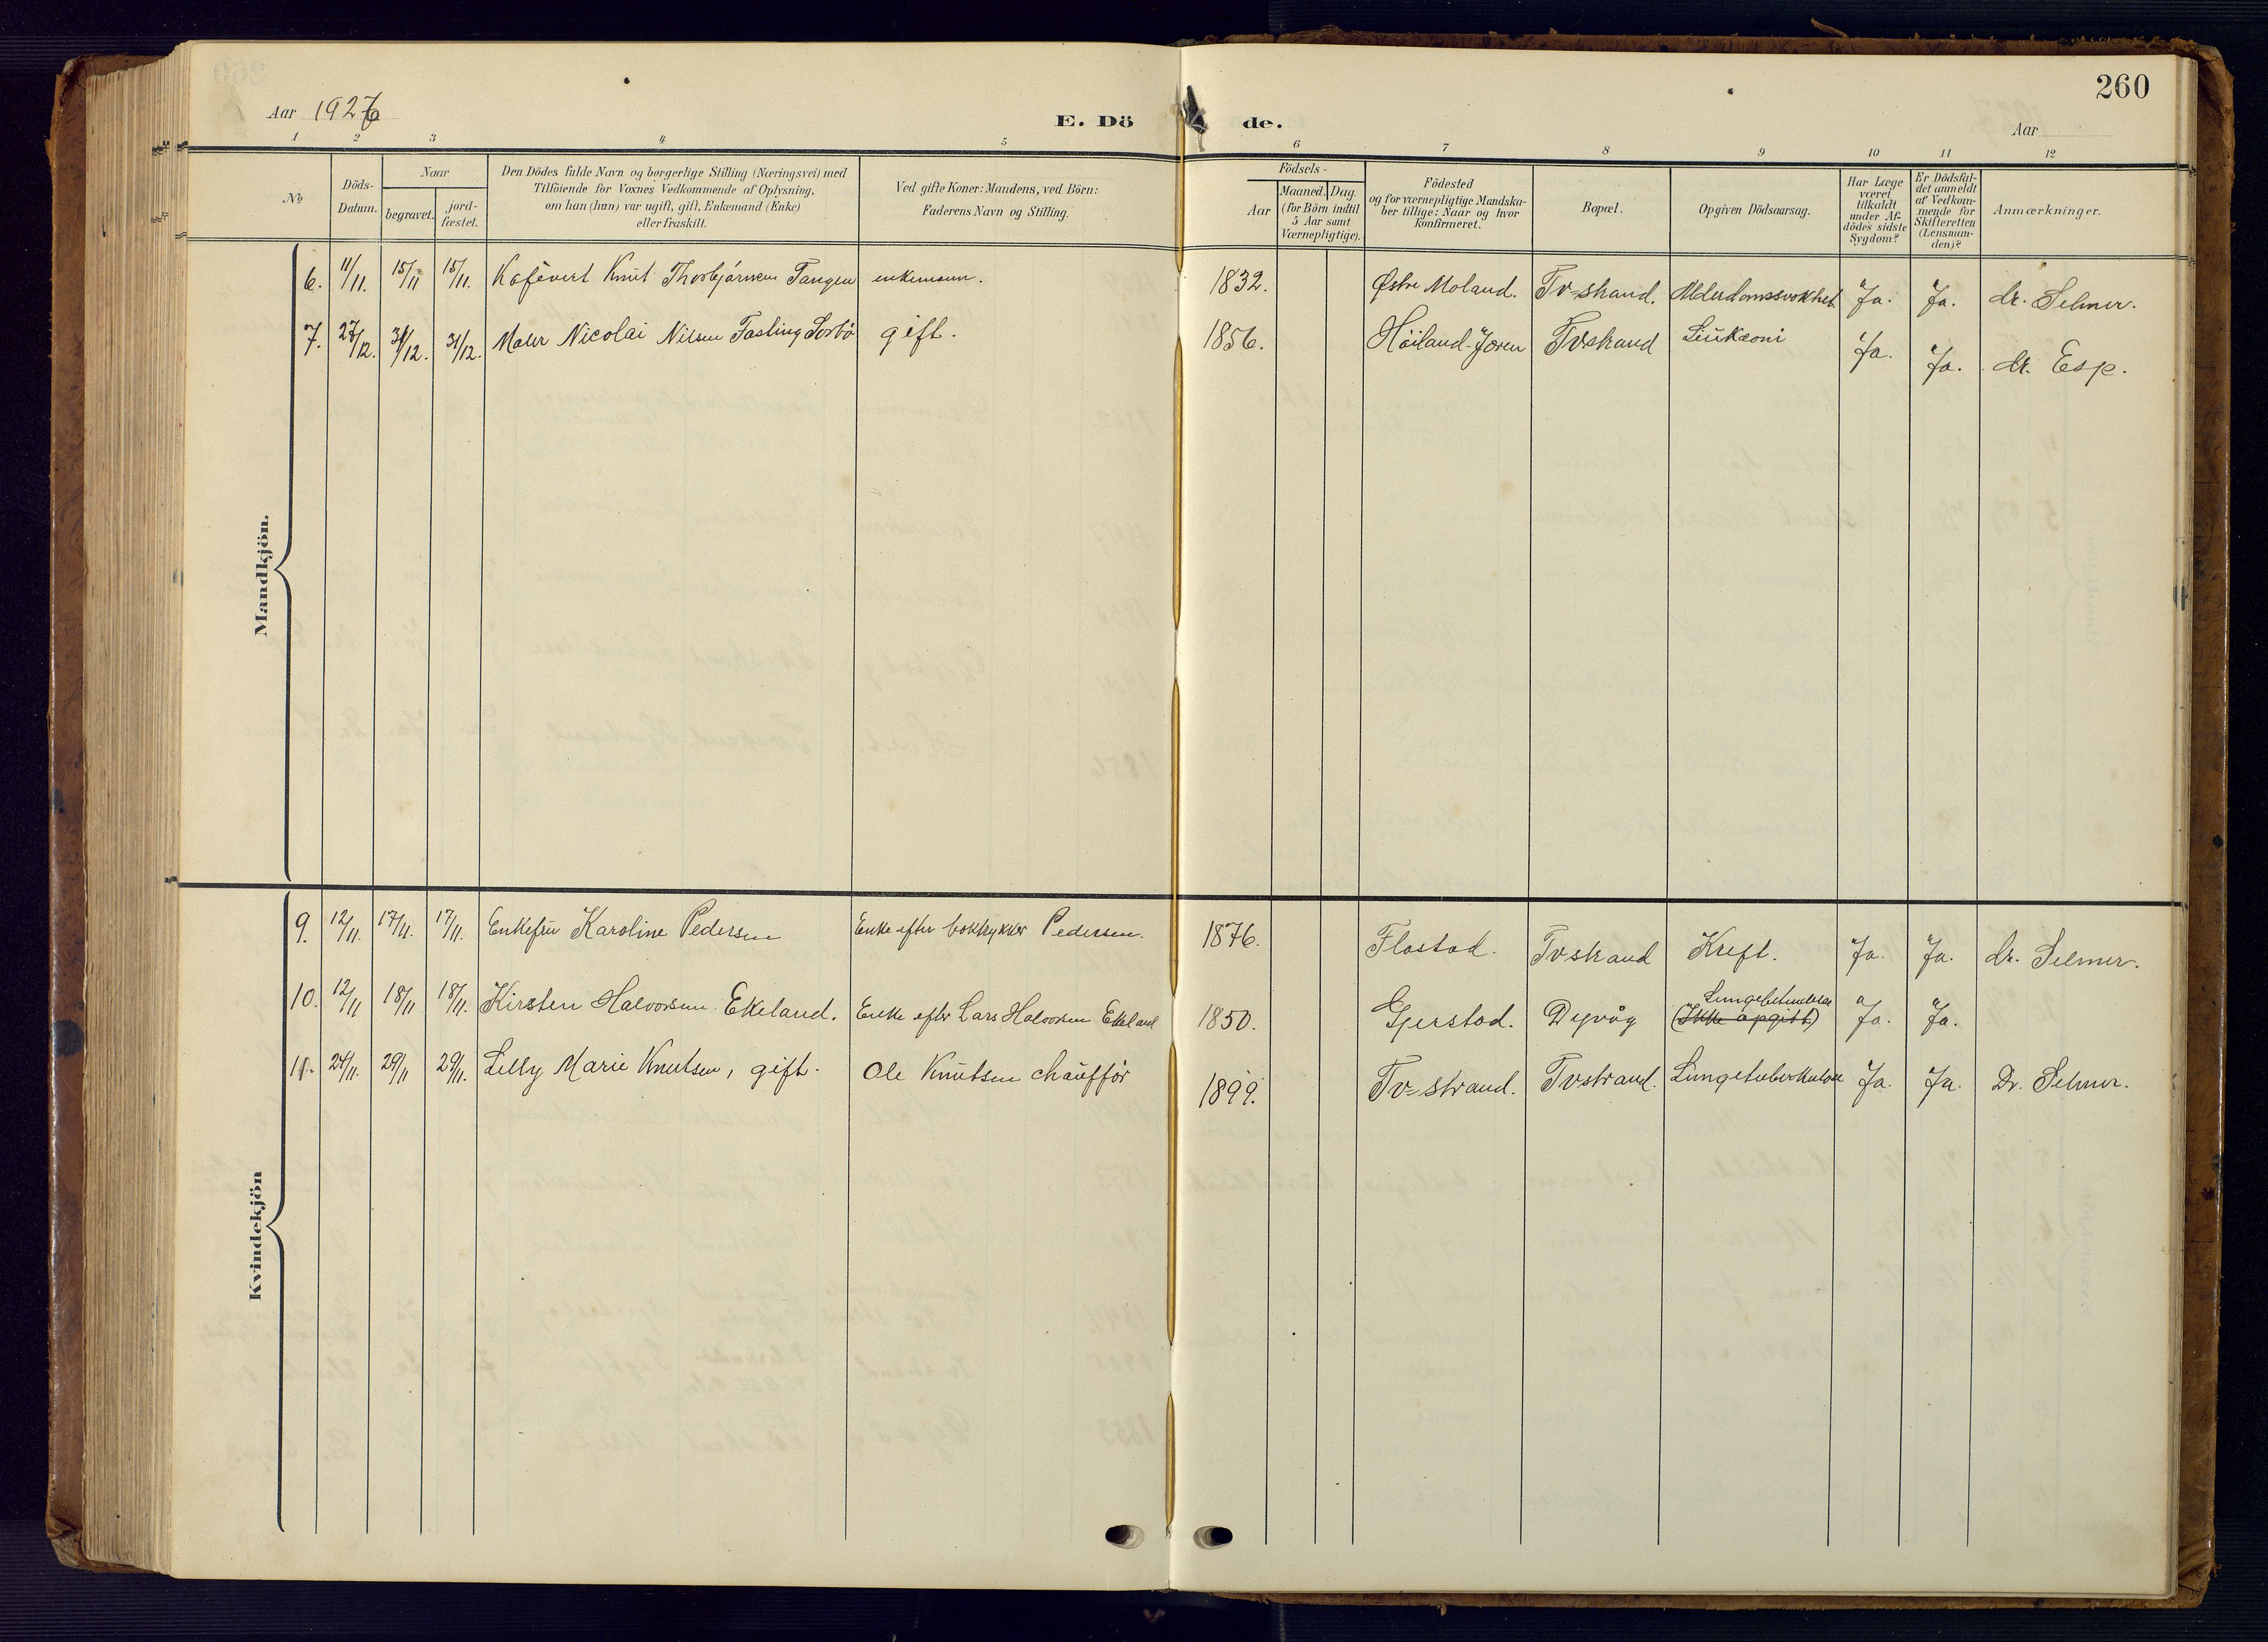 260
Aar 1926
E. Dö de.
Aar
1 2 3 4 5 6 7 8 9 10 11 12
No
Döds-
Datum.
Naar
begravet.
jord-
fæstet.
Den Dödes fulde Navn og borgerlige Stilling (Næringsvei) med
Tilföiende for Voxnes Vedkommende af Oplysning,
om han (hun) var ugift, gift, Enkemand (Enke)
eller fraskilt.
Ved gifte Koner: Mandens, ved Börn:
Faderens Navn og Stilling.
Födsels-
Aar
Maaned. Dag.
(for Börn indtil
5 Aar samt
Værnepligtige).
Födested
og for værnepligtige Mandska-
ber tillige: Naar og hvor
Konfirmeret.
Bopæl.
Opgiven Dödsaarsag.
Har Læge
været
tilkaldt
under Af-
dödes sidste
Sygdom?
Er Dödsfal-
det anmeldt
af Vedkom-
mende for
Skifteretten
(Lensman-
den)?
Anmærkninger.
Mandkjön.
6. 11/11. 15/11 15/11. Kafévert Knut Thorbjörnsen Tangen enkemann. 1832. Østre Moland. Tv=strand. Alderdomssvakhet. Ja. Ja. dr. Selmer.
7. 27/12. 31/12. 31/12. Maler Nicolai Nilsen Fasting Sorbö gift. 1856. Höiland-Jæren Tvstrand Leukæmi Ja. Ja. dr. Esp.
Kvindekjön
9. 12/11. 17/11. 17/11. Enkefru Karoline Pedersen Enke efter boktrykker Pedersen. 1876. Flostad. Tvstrand Kreft. Ja. Ja. dr. Selmer.
10. 12/11 18/11 18/11. Kirsten Halvorsen Ekeland. Enke efter Lars Halvorsen Ekeland 1850. Gjerstad. Dypvåg Lungebetendelse (Ikke opgitt) Ja. Ja.
11. 24/11. 29/11 29/11. Lelly Marie Knutsen, gift. Ole Knutsen chaufför 1899. Tv=strand. Tvstrand. Lungetuberkulose Ja. Ja. Dr. Selmer.